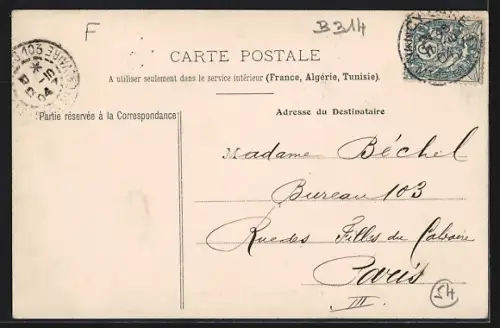 F
B314
CARTE POSTALE
A utiliser seulement dans le service intérieur (France, Algérie, Tunisie).
Partie réservée à la Correspondance
Adresse du Destinataire
Madame Béchel
Bureau 103
Rue des Filles du Calvaire
Paris
III
54
103
04